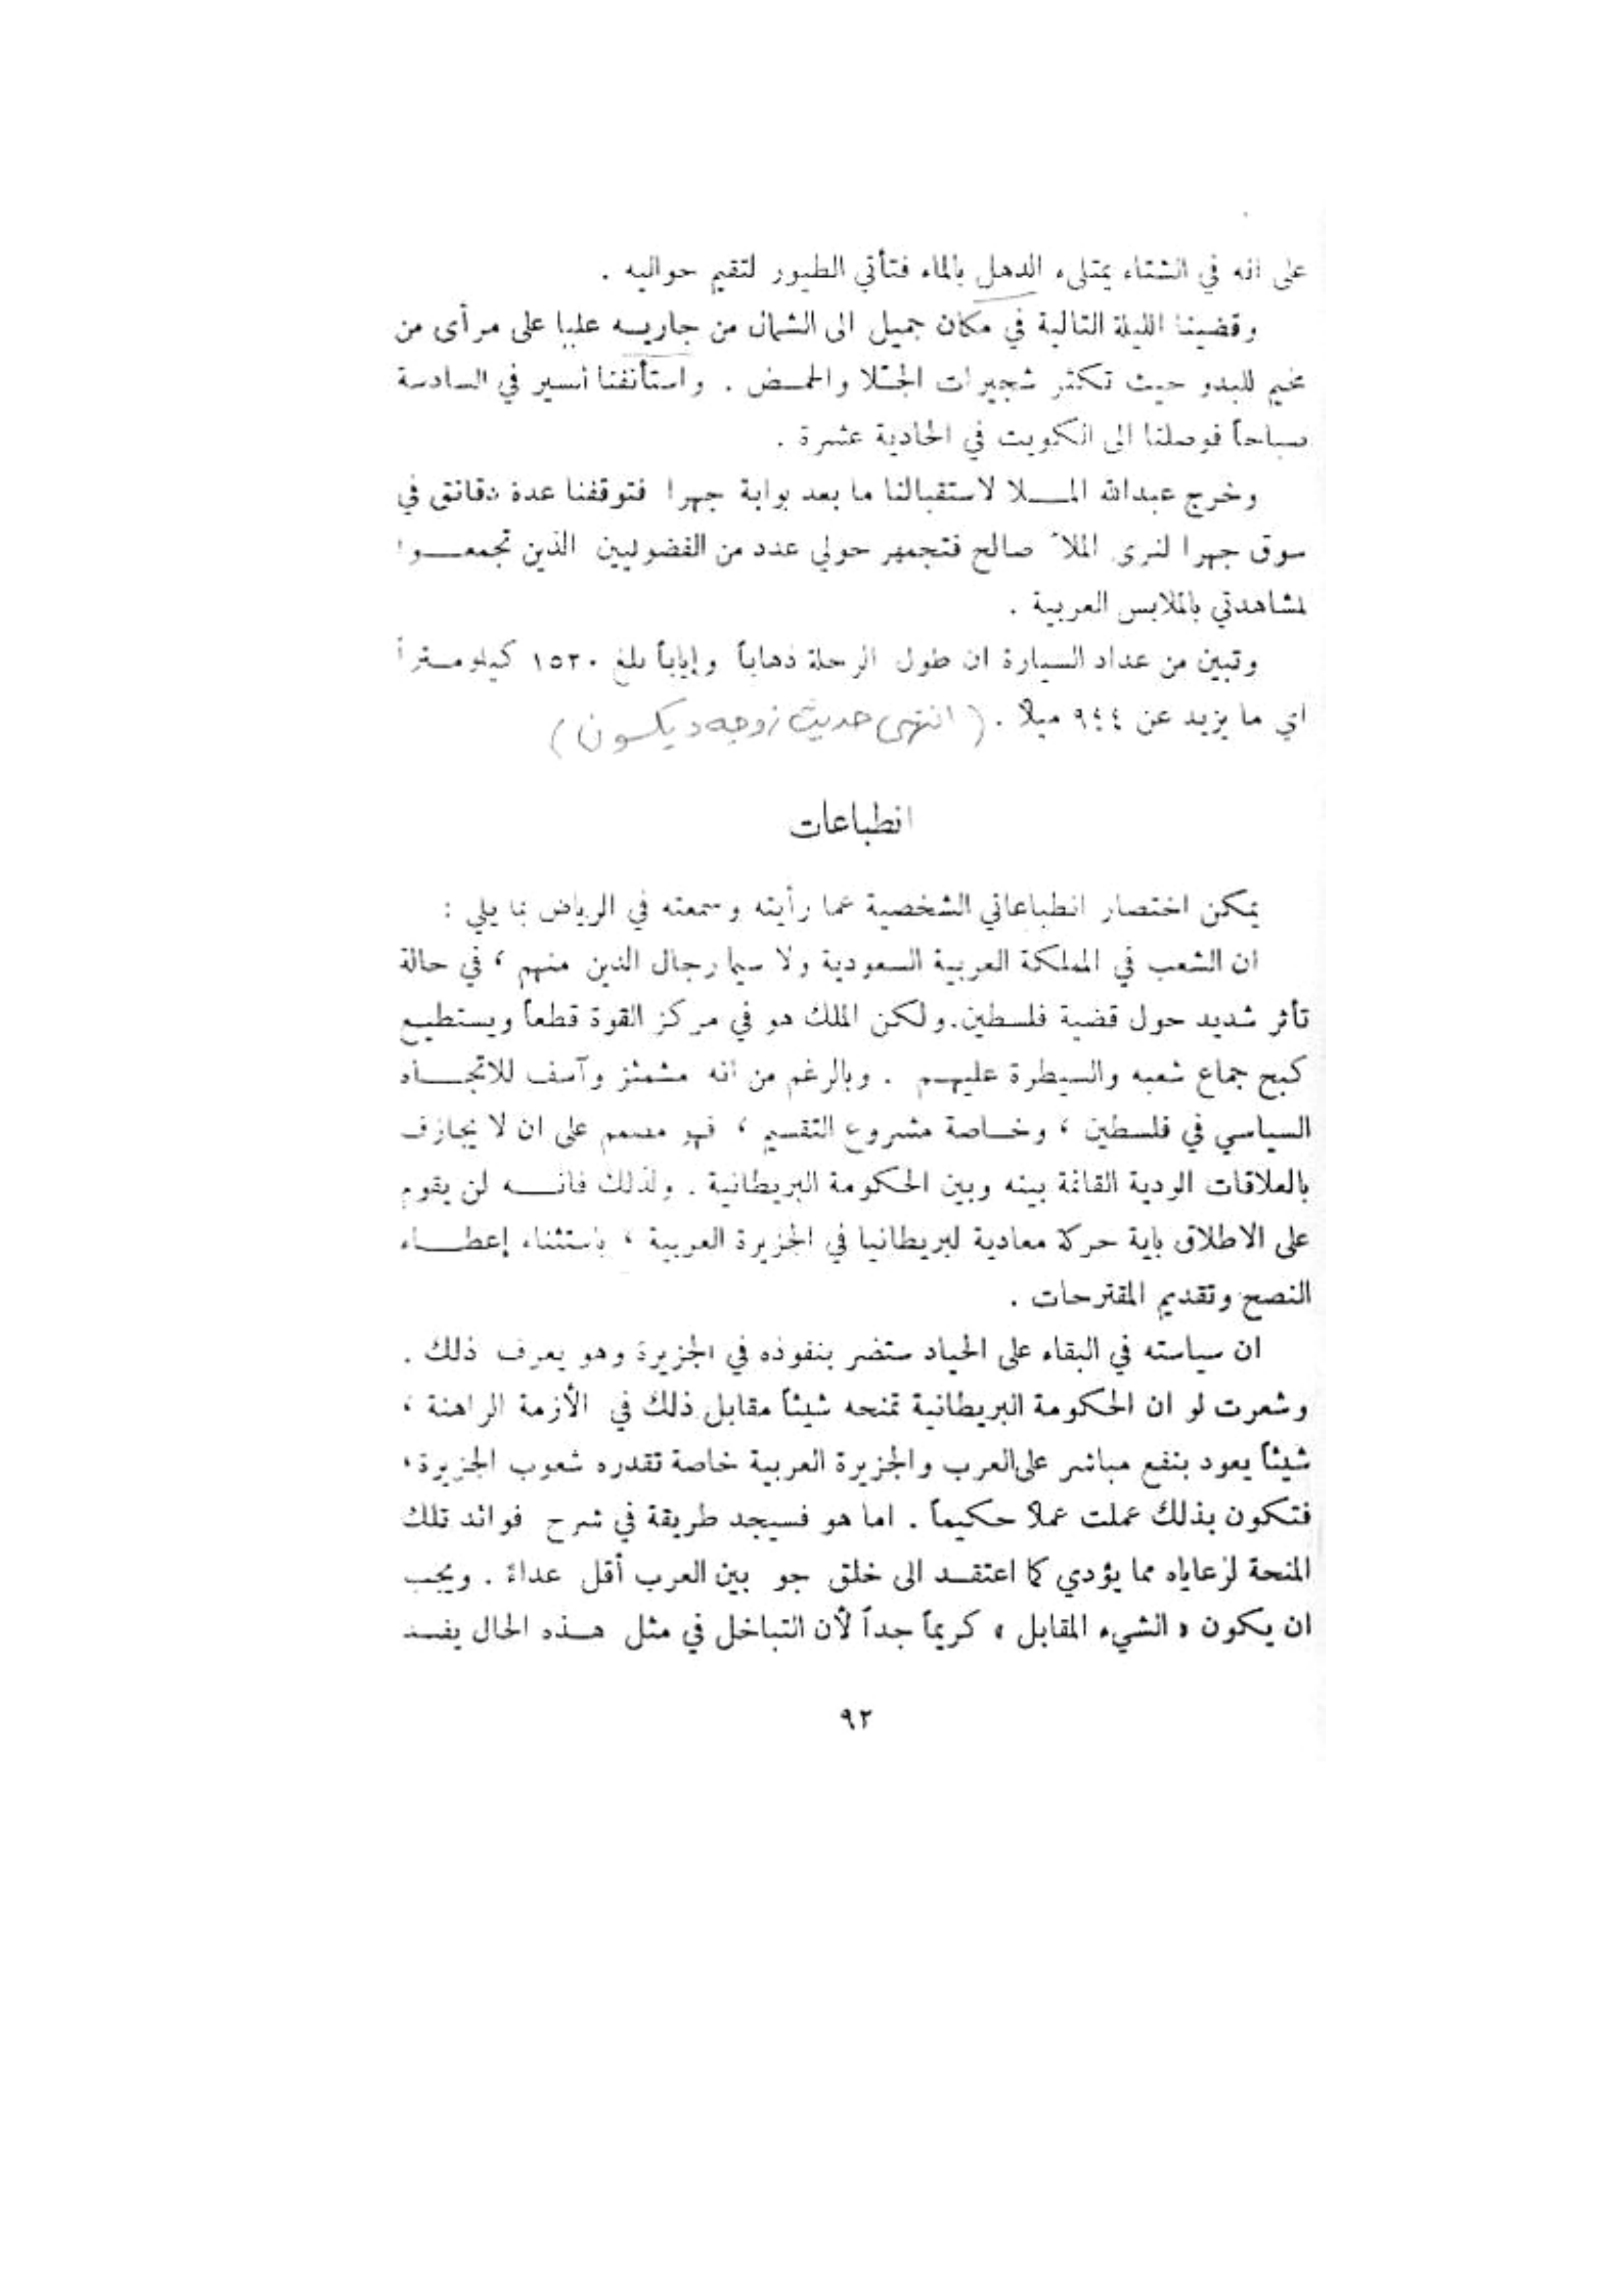 على انه في الشتاء يمتلىء الدهل بالماء فتأتي الطيور لتقيم حواليه .
وقضينا الليلة التالية في مكان جميل الى الشمال من جاريه عليا على مرأى من
مخيم للبدو حيث تكثر شجيرات الجثلا والحمـض . واستأنفنا السير في السادسة
صباحاً فوصلنا الى الكويت في الحادية عشرة .
وخرج عبدالله المـــلا لاستقبالنا ما بعد بوابة جهرا فتوقفنا عدة دقائق في
سوق جهرا لنرى الملاّ صالح فتجمهر حولي عدد من الفضوليين الذين تجمعـــوا
لمشاهدتي بالملابس العربية .
وتبين من عداد السيارة ان طول الرحلة ذهاباً وإياباً بلغ ١٥٢٠ كيلومـتراً
اي ما يزيد عن ٩٤٤ ميلا . ( انتهى حديث زوجه ديكسون )
انطباعات
يمكن اختصار انطباعاتي الشخصية عما رأيته وسمعته في الرياض بما يلي :
ان الشعب في المملكة العربية السعودية ولا سيما رجال الدين منهم ، في حالة
تأثر شديد حول قضية فلسطين. ولكن الملك هو في مركز القوة قطعاً ويستطيـع
كبح جماع شعبه والسيطرة عليهـم . وبالرغم من انه مشمئز وآسف للاتجـــاه
السياسي في فلسطين ، وخـاصة مشروع التقسيم ، فهو مصمم على ان لا يجازف
بالعلاقات الودية القائمة بينه وبين الحكومة البريطانية . ولذلك فانـــه لن يقوم
على الاطلاق باية حركة معادية لبريطانيا في الجزيرة العربية ، باستثناء إعطـــاء
النصح وتقديم المقترحات .
ان سياسته في البقاء على الحياد ستضر بنفوذه في الجزيرة وهو يعرف ذلك .
وشعرت لو ان الحكومة البريطانية تمنحه شيئاً مقابل ذلك في الأزمة الراهنة ،
شيئاً يعود بنفع مباشر على العرب والجزيرة العربية خاصة تقدره شعوب الجزيرة ،
فتكون بذلك عملت عملا حكيماً . اما هو فسيجد طريقة في شرح فوائد تلك
المنحة لرعاياه مما يؤدي كما اعتقــد الى خلق جو بين العرب أقل عداءً . ويجب
ان يكون « الشيء المقابل » كريماً جداً لأن التباخل في مثل هـذه الحال يفسد
٩٢